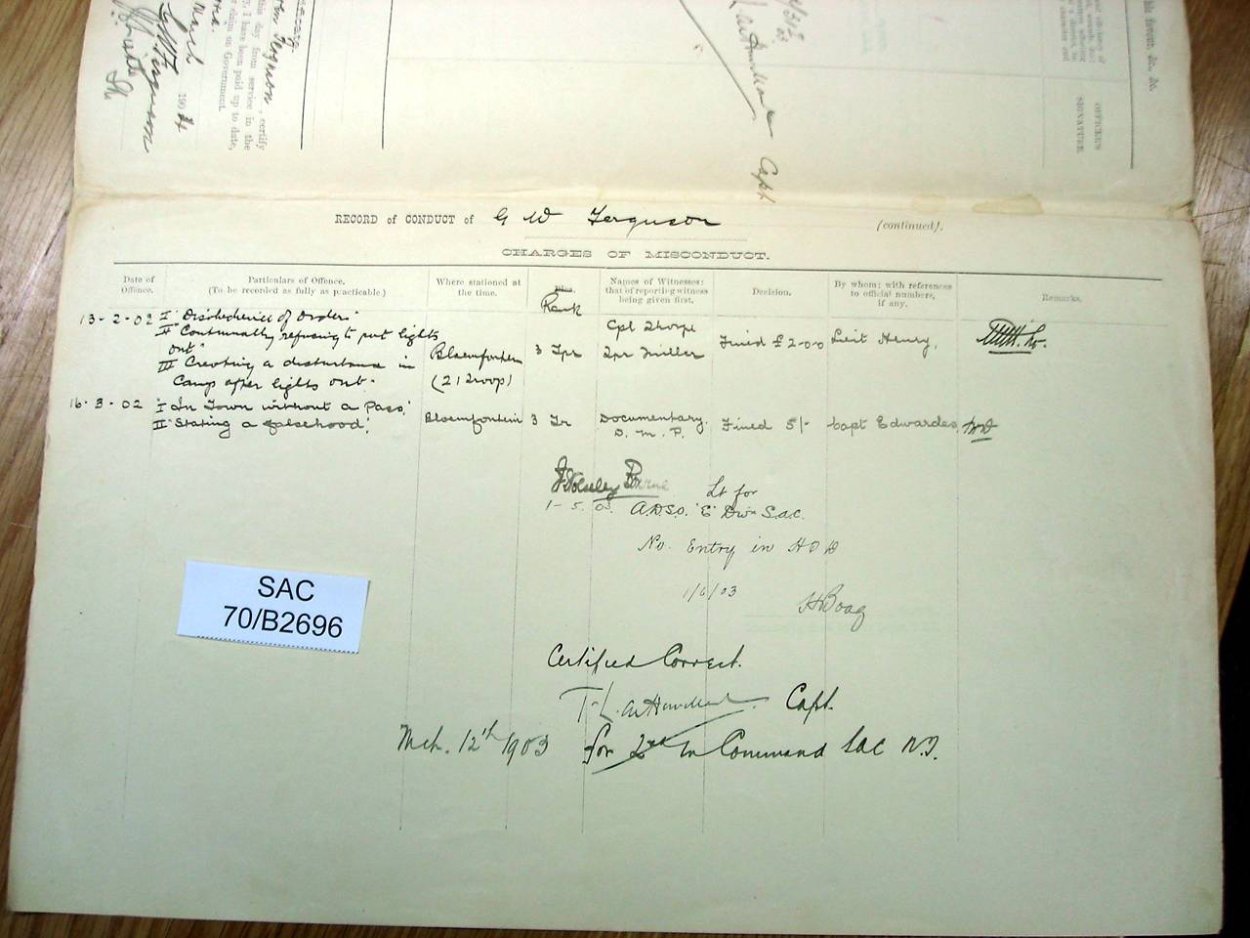 Ferguson, certify
this day from service in the
I have been paid up to date,
claim on Government.
March
1904
G W Ferguson
Capt
OFFICER'S
SIGNATURE
RECORD of CONDUCT of G W Ferguson (continued).
CHARGES OF MISCONDUCT.
Date of Offence.
Particulars of Offence.
(To be recorded as fully as practicable.)
Where stationed at the time.
Rank
Names of Witnesses: that of reporting witness being given first.
Decision.
By whom; with references to official numbers, if any.
Remarks.
13-2-02 I "Disobedience of Orders"
II "Continually refusing to put lights
out"
III Creating a disturbance in
Camp after lights out.
Bloemfontein
(21 Troop)
3 Tpr
Cpl Thorpe
Tpr Miller
Fined £2-0-0
Lieut Henry,
16-3-02 I "In Town without a Pass,"
II "Stating a falsehood".
Bloemfontein 3 Tr
Documentary.
D. M. P.
Fined 5/-
Capt Edwardes,
Lt for
1-5-03. A.D.S.O. 'E' Divn S.A.C.
No Entry in
1/6/03
H Boag
Certified Correct.
Capt.
Mch. 12th 1903 for 2nd In Command SAC
SAC
70/B2696